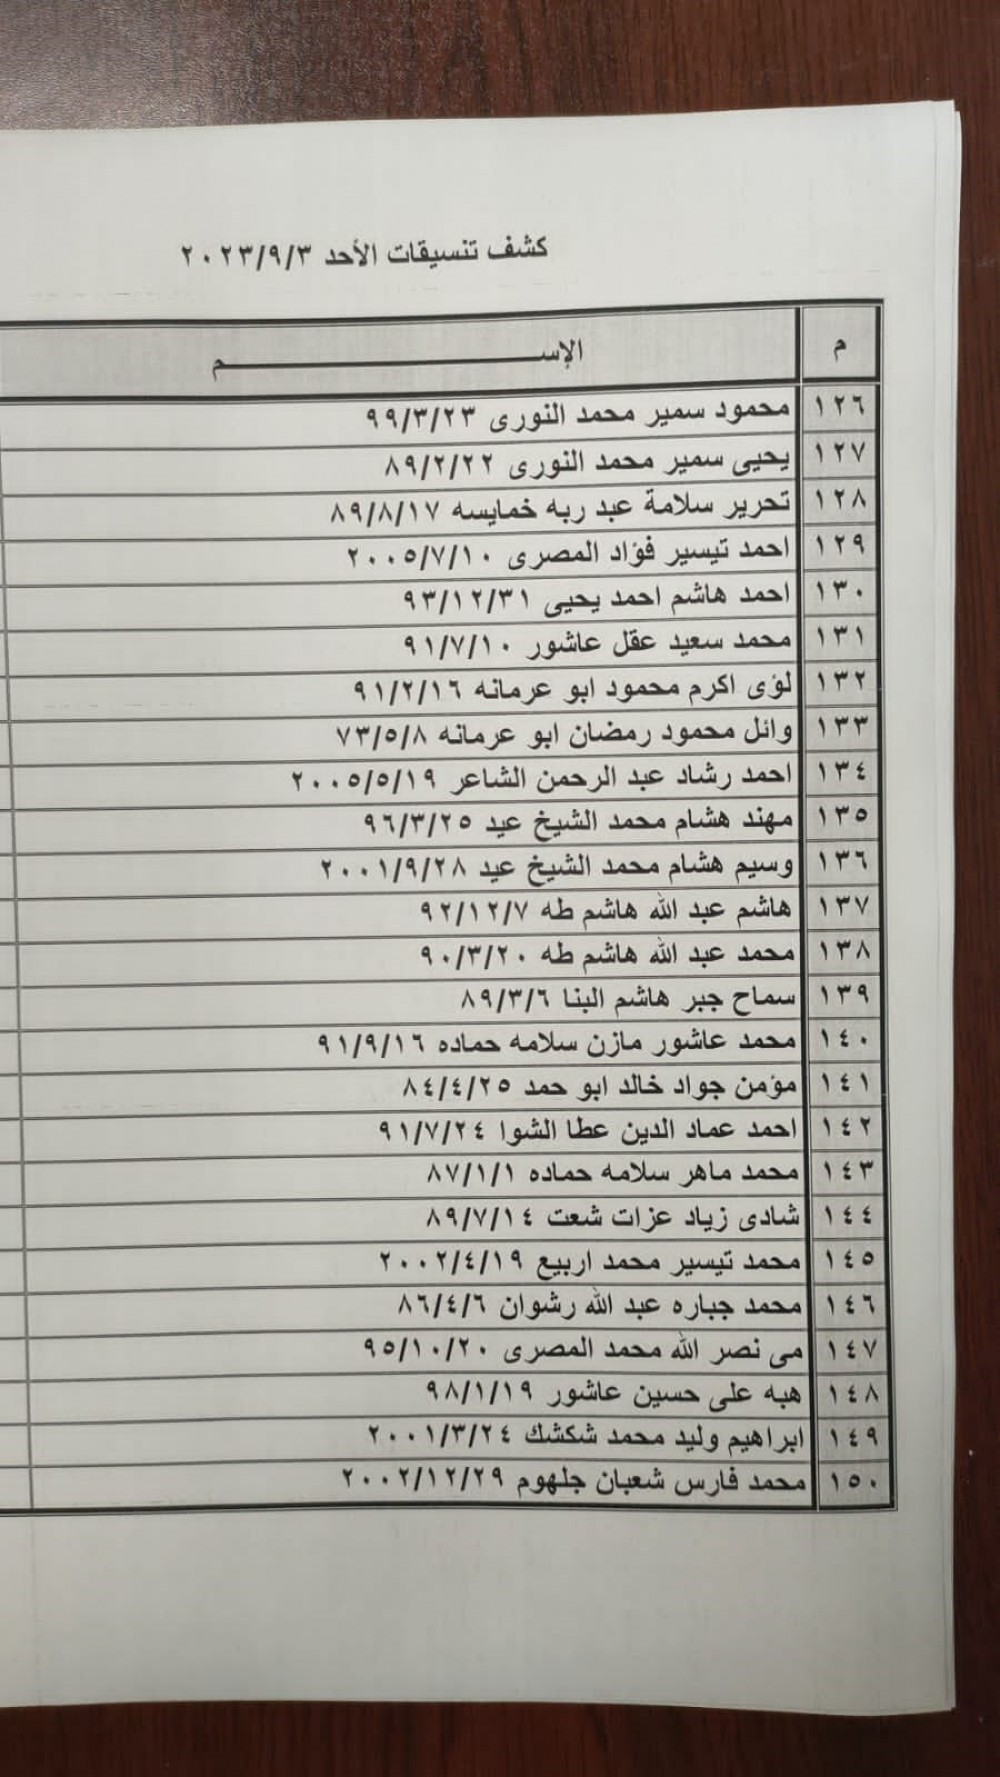 كشف تنسيقات الأحد ٢٠٢٣/٩/٣
م الإســـــــــم
١٢٦ محمود سمير محمد النورى ٩٩/٣/٢٣
١٢٧ يحيى سمير محمد النورى ٨٩/٢/٢٢
١٢٨ تحرير سلامة عبد ربه خمايسه ٨٩/٨/١٧
١٢٩ احمد تيسير فؤاد المصرى ٢٠٠٥/٧/١٠
١٣٠ احمد هاشم احمد يحيى ٩٣/١٢/٣١
١٣١ محمد سعيد عقل عاشور ٩١/٧/١٠
١٣٢ لؤى اكرم محمود ابو عرمانه ٩١/٢/١٦
١٣٣ وائل محمود رمضان ابو عرمانه ٧٣/٥/٨
١٣٤ احمد رشاد عبد الرحمن الشاعر ٢٠٠٥/٥/١٩
١٣٥ مهند هشام محمد الشيخ عيد ٩٦/٣/٢٥
١٣٦ وسيم هشام محمد الشيخ عيد ٢٠٠١/٩/٢٨
١٣٧ هاشم عبد الله هاشم طه ٩٢/١٢/٧
١٣٨ محمد عبد الله هاشم طه ٩٠/٣/٢٠
١٣٩ سماح جبر هاشم البنا ٨٩/٣/٦
١٤٠ محمد عاشور مازن سلامه حماده ٩١/٩/١٦
١٤١ مؤمن جواد خالد ابو حمد ٨٤/٤/٢٥
١٤٢ احمد عماد الدين عطا الشوا ٩١/٧/٢٤
١٤٣ محمد ماهر سلامه حماده ٨٧/١/١
١٤٤ شادى زياد عزات شعت ٨٩/٧/١٤
١٤٥ محمد تيسير محمد اربيع ٢٠٠٢/٤/١٩
١٤٦ محمد جباره عبد الله رشوان ٨٦/٤/٦
١٤٧ مى نصر الله محمد المصرى ٩٥/١٠/٢٠
١٤٨ هبه على حسين عاشور ٩٨/١/١٩
١٤٩ ابراهيم وليد محمد شكشك ٢٠٠١/٣/٢٤
١٥٠ محمد فارس شعبان جلهوم ٢٠٠٢/١٢/٢٩